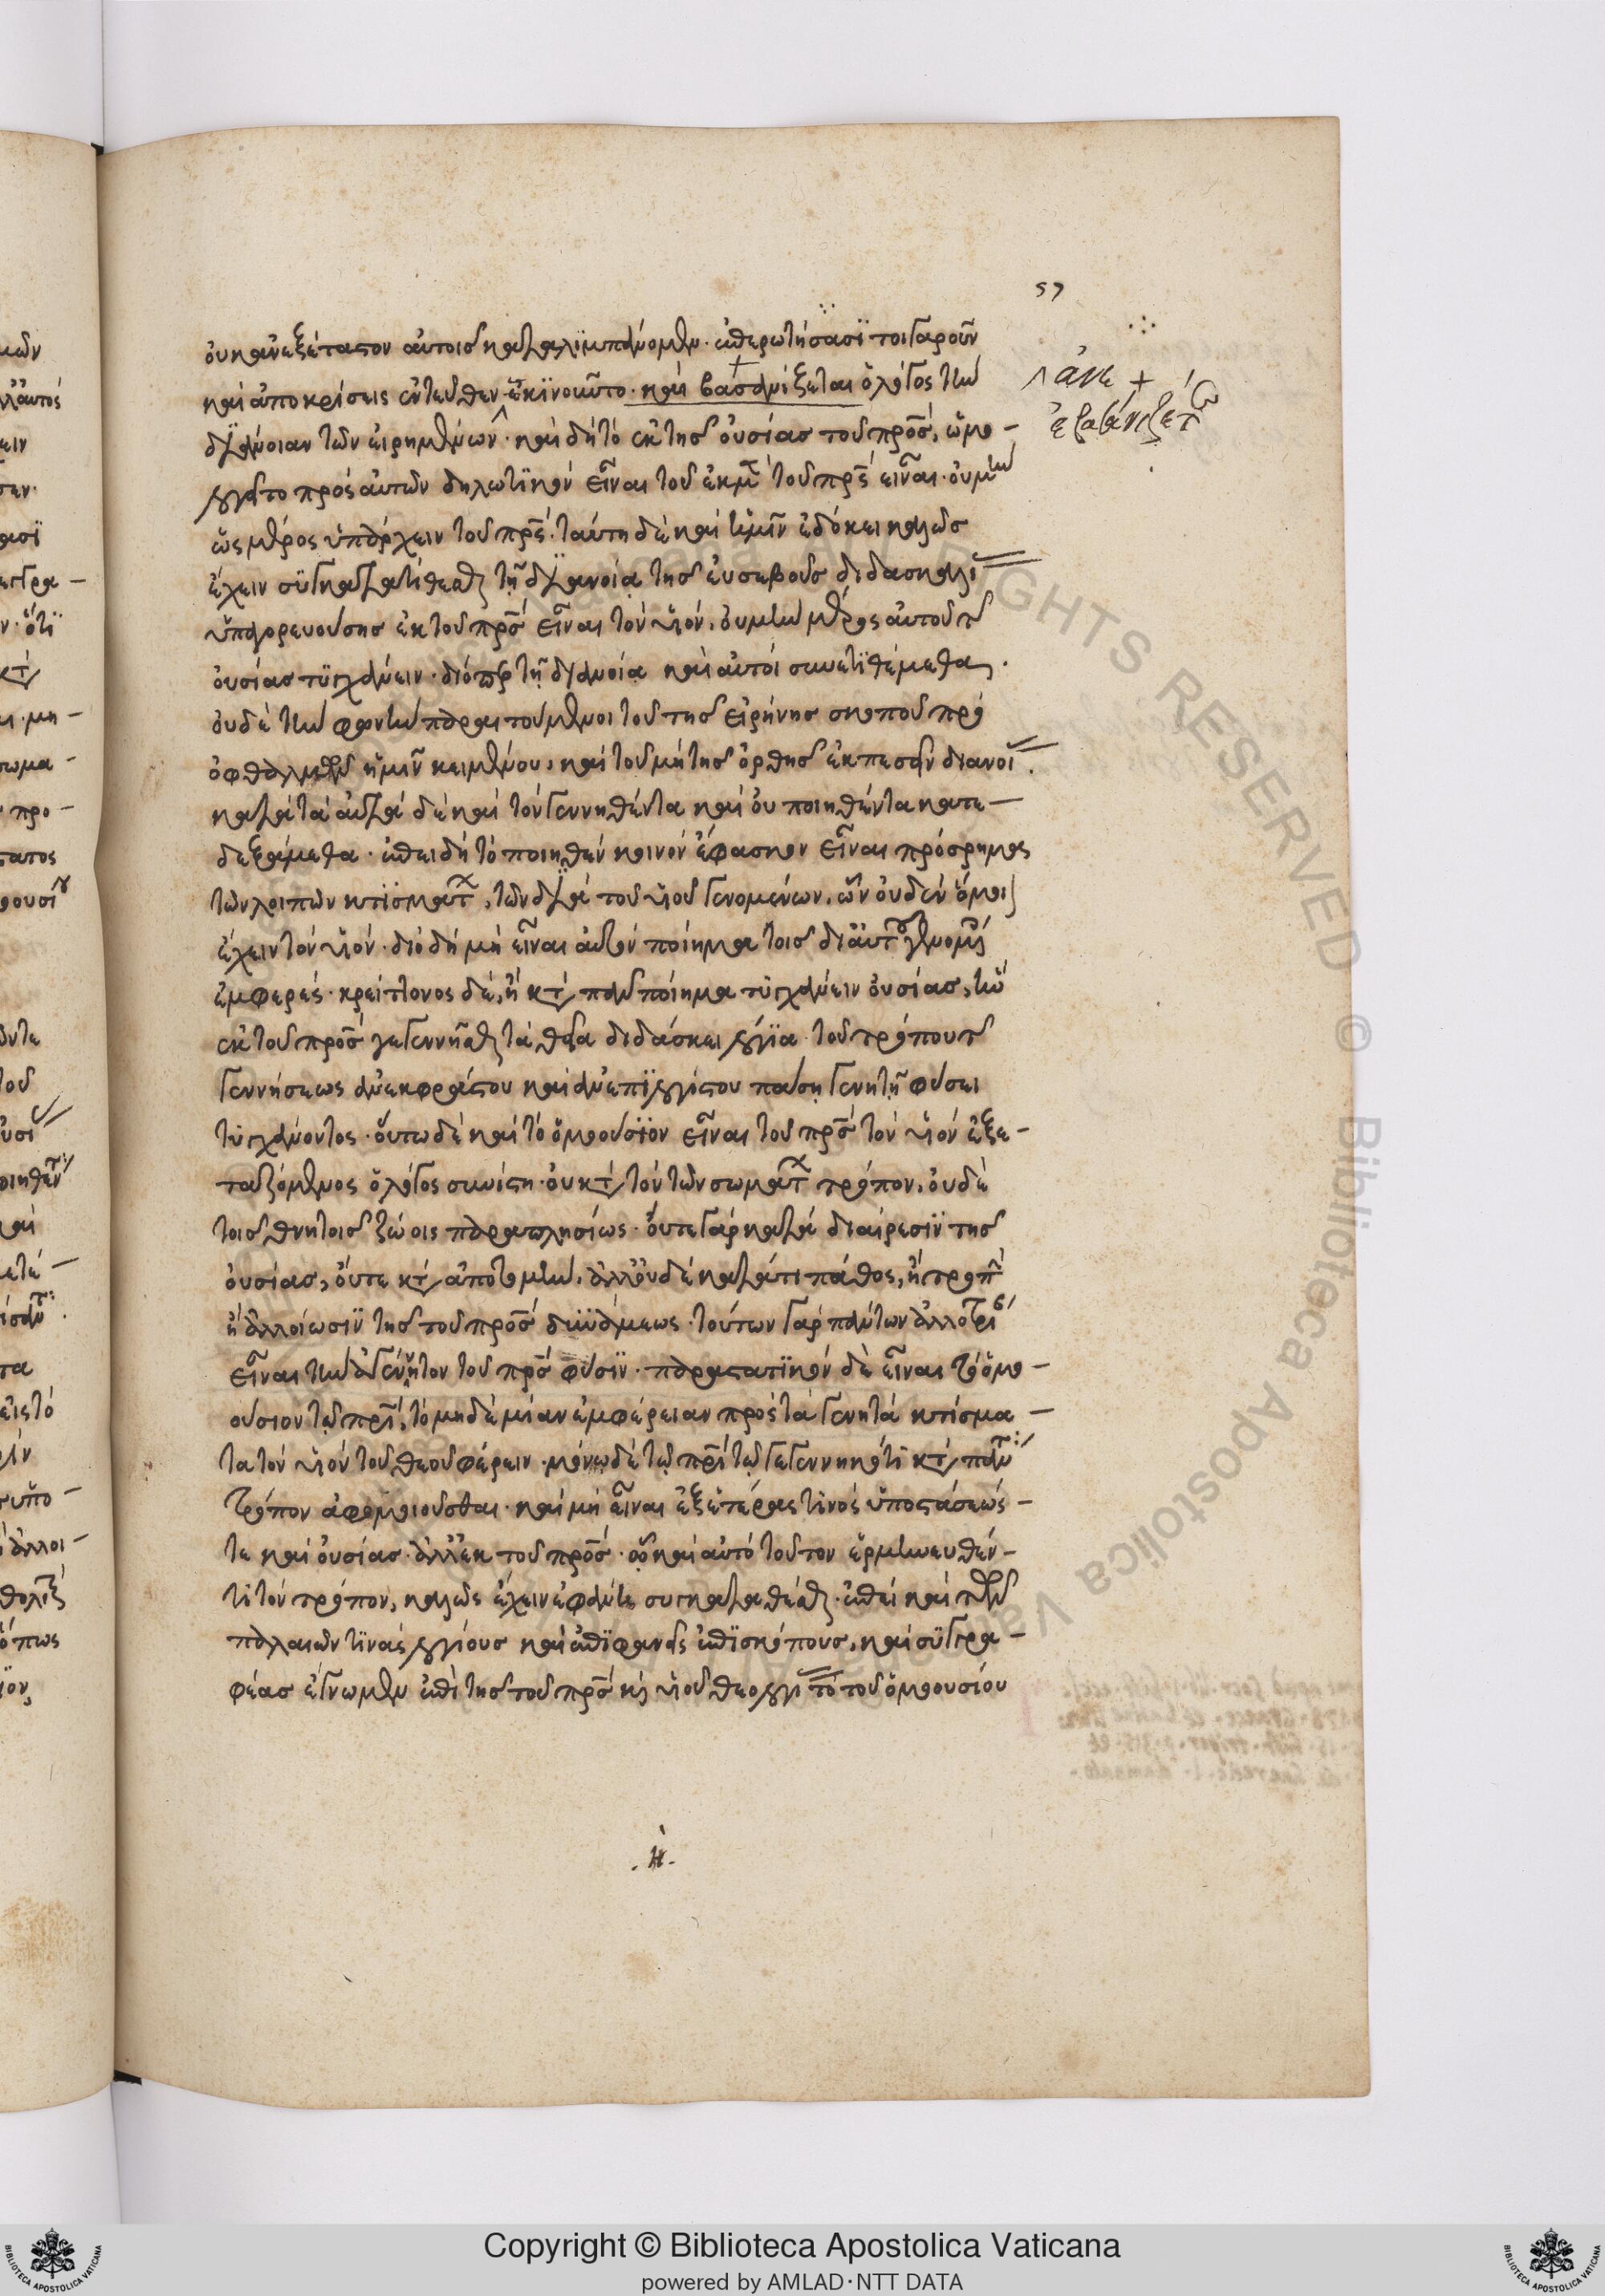 57
οὐκ ἀνεξέταστον αὐτοῖς καταλιμπάνομεν · ἐπερωτήσασι τοιγαροῦν
καὶ ἀποκρίσεις ἐντεῦθεν ἐκινοῦντο · καὶ βασανίζεται ὁ λόγος τὴν
διάνοιαν τῶν εἰρημένων · καὶ δὴ τὸ ἐκ τῆς οὐσίας τοῦ πρσ, ὡμο-
λόγητο πρὸς αὐτῶν δηλωτικὸν εἶναι τοῦ ἐκ μ τοῦ πρς εἶναι · οὐ μὴν
ὡς μέρος ὑπάρχειν τοῦ πρς · ταύτη δὲ καὶ ἡμῖν ἐδόκει καλῶς
ἔχειν συγκατατίθεσθαι τῇ διανοίᾳ τῆς εὐσεβοῦς διδασκαλι
ὑπαγορευούσης ἐκ τοῦ πρς εἶναι τὸν υἱόν, οὐ μὴν μέρος αὐτοῦ τ
οὐσίας τυγχάνειν · διόπερ τῇ διανοίᾳ καὶ αὐτοὶ συνετιθέμεθα ·
οὐδὲ τὴν φωνὴν παραιτούμενοι τοῦ τῆς εἰρήνης σκοποῦ πρὸ
ὀφθαλμῶν ἡμῖν κειμένου, καὶ τοῦ μὴ τῆς ὀρθῆς ἐκπεσεῖν διανοι.
κατὰ τὰ αὐτὰ δὲ καὶ τὸν γεννηθέντα καὶ οὐ ποιηθέντα κατε-
δεξάμεθα · ἐπειδὴ τὸ ποιηθὲν κοινὸν ἔφασκον εἶναι πρόσρημα
τῶν λοιπῶν κτισμάτ, τῶν διὰ τοῦ υἱοῦ γενομένων, ὧν οὐδὲν ὅμοι
ἔχειν τὸν υἱόν · διὸ δὴ μὴ εἶναι αὐτὸν ποίημα τοῖς δι αὐτοῦ γενομ
ἐμφερές · κρείττονος δέ, ἢ κτ πᾶν ποίημα τυγχάνειν οὐσίας, ἣν
ἐκ τοῦ πρσ γεγεννῆσθαι τὰ θεῖα διδάσκει λόγια τοῦ τρόπου τ
γεννήσεως ἀνεκφράστου καὶ ἀνεπιλογίστου πάσῃ γενητῇ φύσει
τυγχάνοντος · οὕτω δὲ καὶ τὸ ὁμοούσιον εἶναι τοῦ πρς τὸν υἱὸν ἐξε-
ταζόμενος ὁ λόγος συνίστη · οὐ κτ τὸν τῶν σωμάτ τρόπον, οὐδὲ
τοῖς θνητοῖς ζώοις παραπλησίως · οὔτε γὰρ κατὰ διαίρεσιν τῆς
οὐσίας, οὔτε κτ ἀποτομήν, ἀλλ οὐδὲ κατά τι πάθος, ἢ τροπὴ
ἢ ἀλλοίωσιν τῆς τοῦ πρσ δυνάμεως · τούτων γὰρ πάντων ἀλλοτρι
εἶναι τὴν ἀγέννητον τοῦ πρσ φύσιν · παραστατικὸν δὲ εἶναι τὸ ὁμο-
ούσιον τῷ πρι, τὸ μηδεμίαν ἐμφέρειαν πρὸς τὰ γενητὰ κτίσμα-
τα τὸν υἱὸν τοῦ θεοῦ φέρειν · μόνῳ δὲ τῷ πρι τῷ γεγεννηκότι κτ πάντ
τρόπον ἀφομοιοῦσθαι · καὶ μὴ εἶναι ἐξ ἑτέρας τινὸς ὑποστάσεώς-
τε καὶ οὐσίας · ἀλλ ἐκ τοῦ πρσ · ᾧ καὶ αὐτὸ τοῦτον ἑρμηνευθέν-
τι τὸν τρόπον, καλῶς ἔχειν ἐφάνη συγκαταθέσθαι · ἐπεὶ καὶ τῶν
παλαιῶν τινὰς λογίους καὶ ἐπιφανεῖς ἐπισκόπους, καὶ συγγρα-
φέας ἔγνωμεν ἐπὶ τῆς τοῦ πρσ κ υἱοῦ θεολογι τὸ τοῦ ὁμοουσίου
· η ·